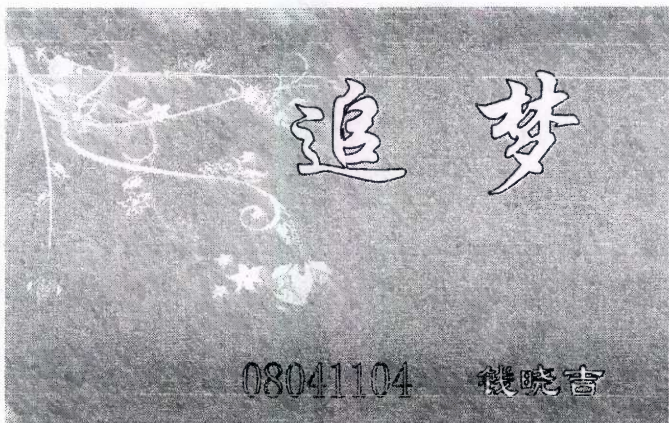 追 梦
08041104 钱晓吉